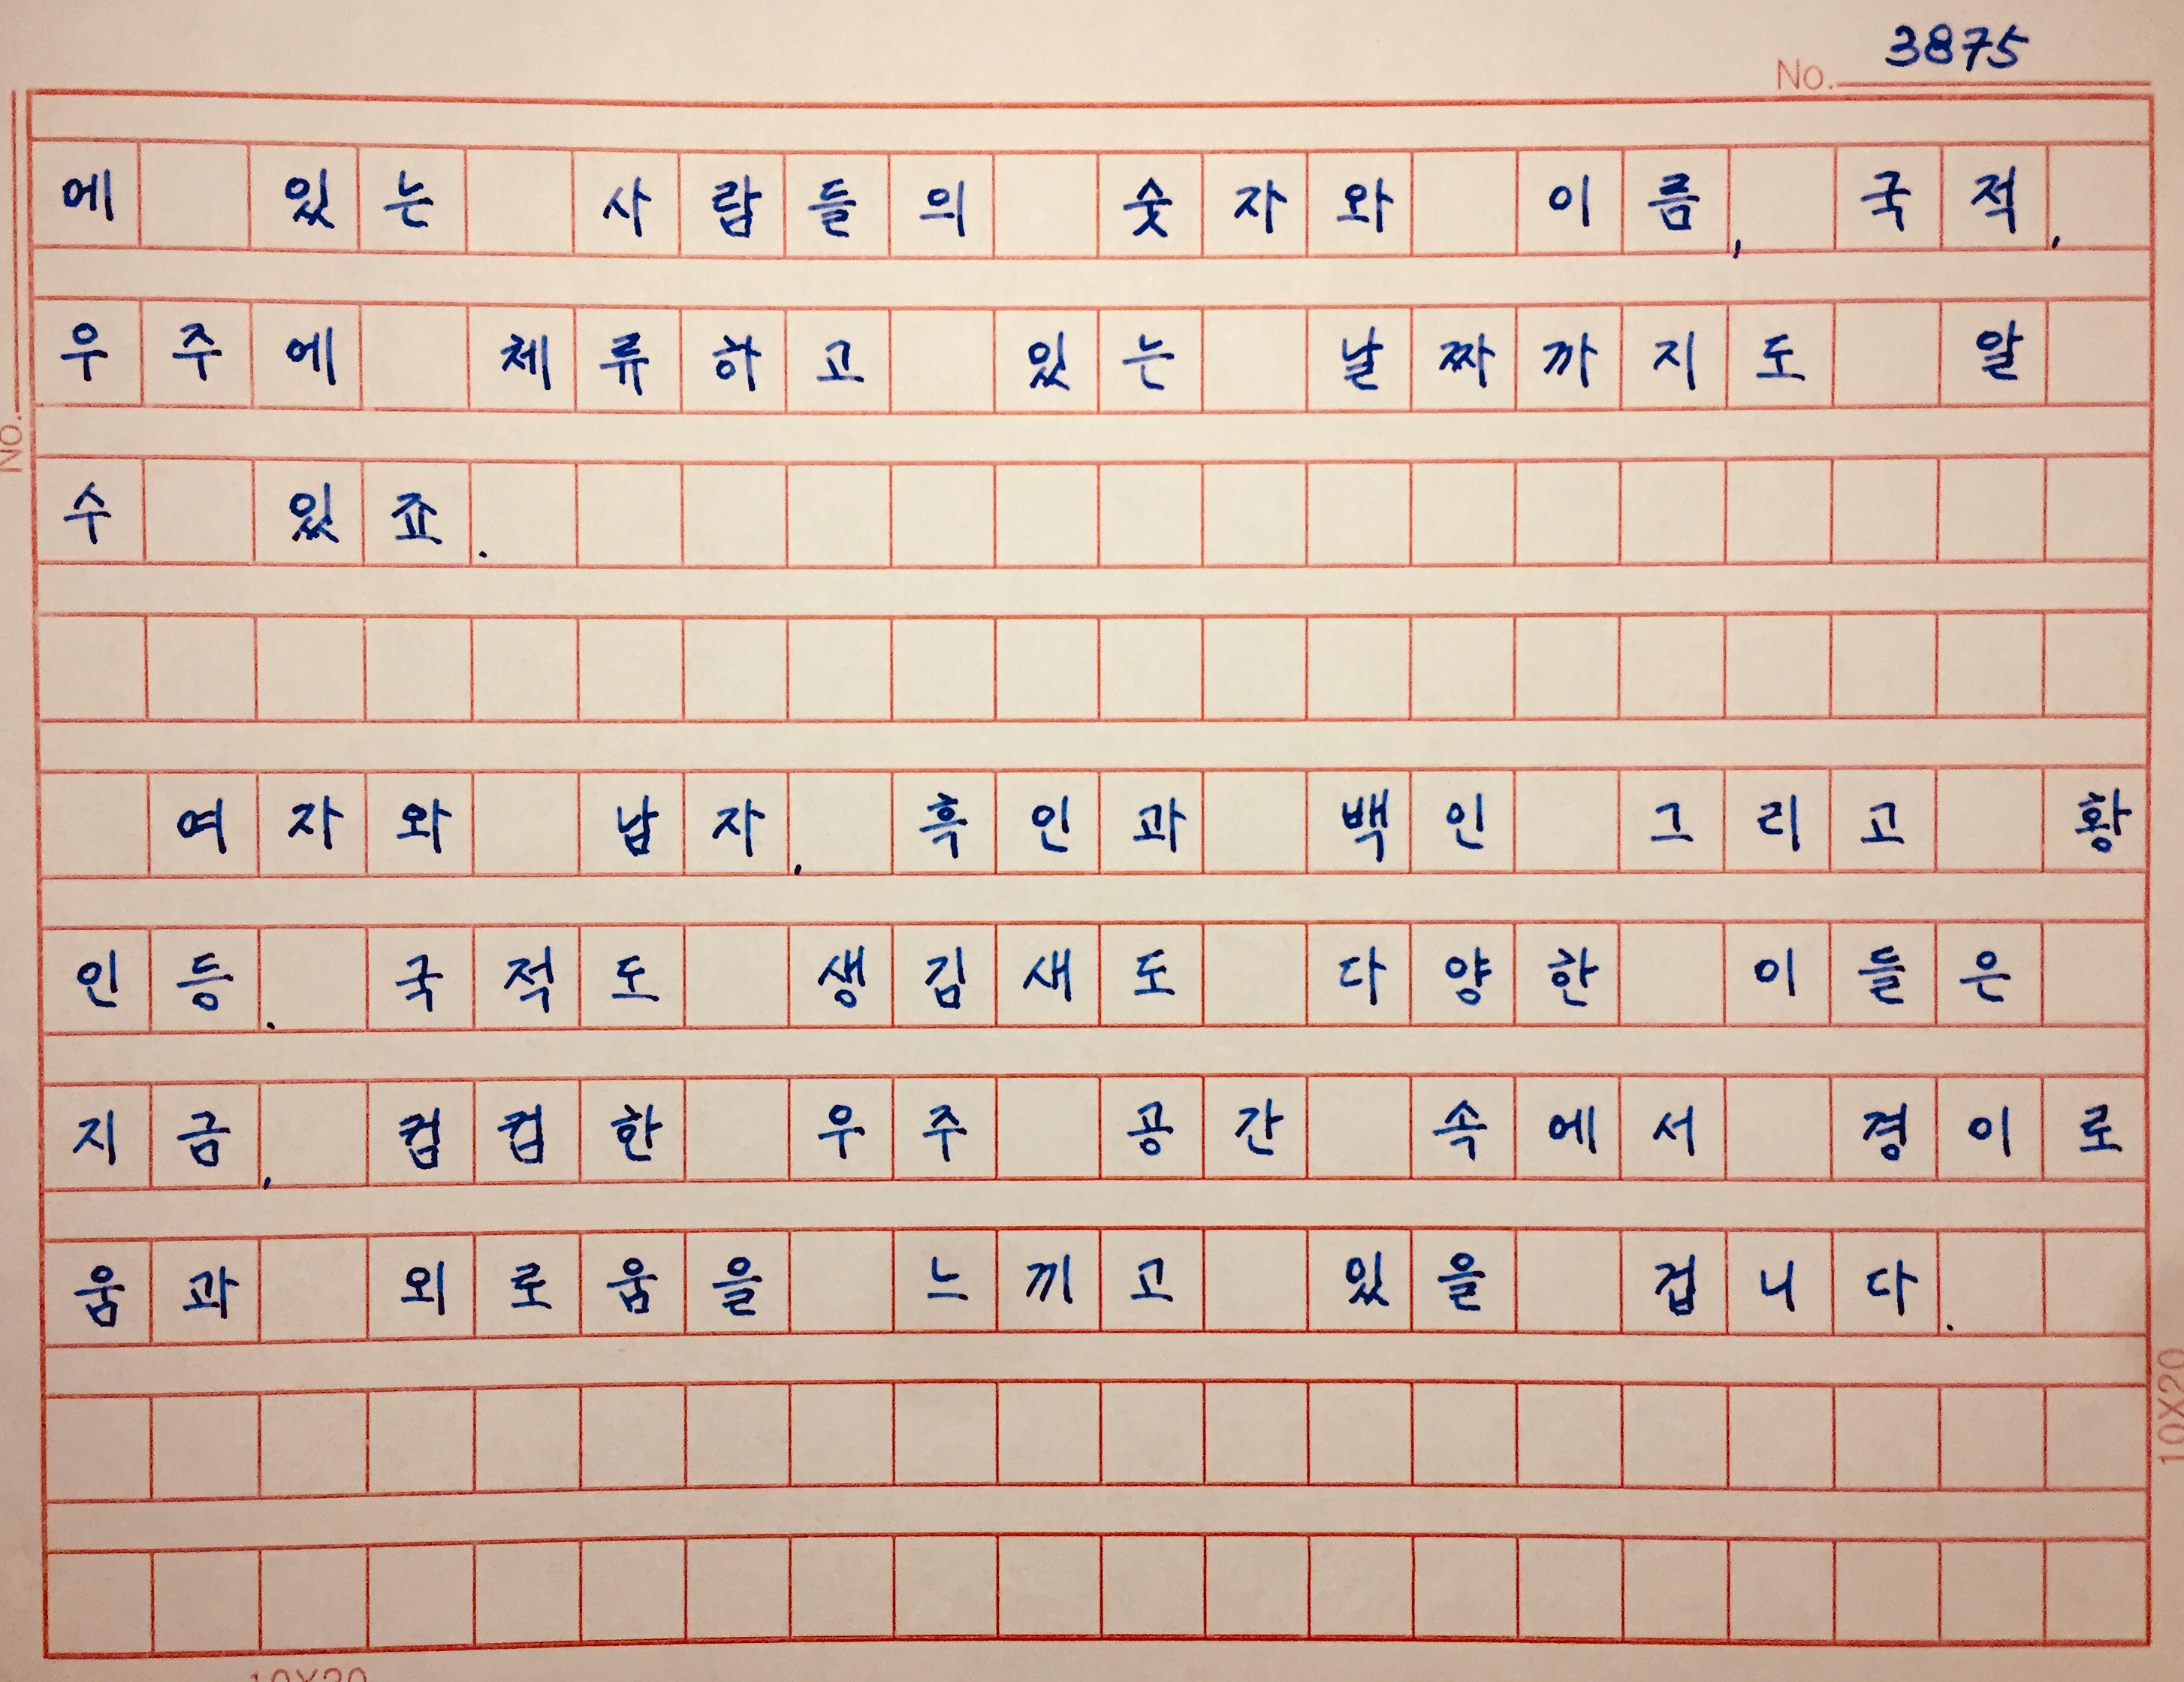 No. 3875
에 있는 사람들의 숫자와 이름, 국적,
우주에 체류하고 있는 날짜까지도 알
수 있죠.
여자와 남자. 흑인과 백인 그리고 황
인등. 국적도 생김새도 다양한 이들은
지금, 컴컴한 우주 공간 속에서 경이로
움과 외로움을 느끼고 있을 겁니다.
No.
10X20
10X20